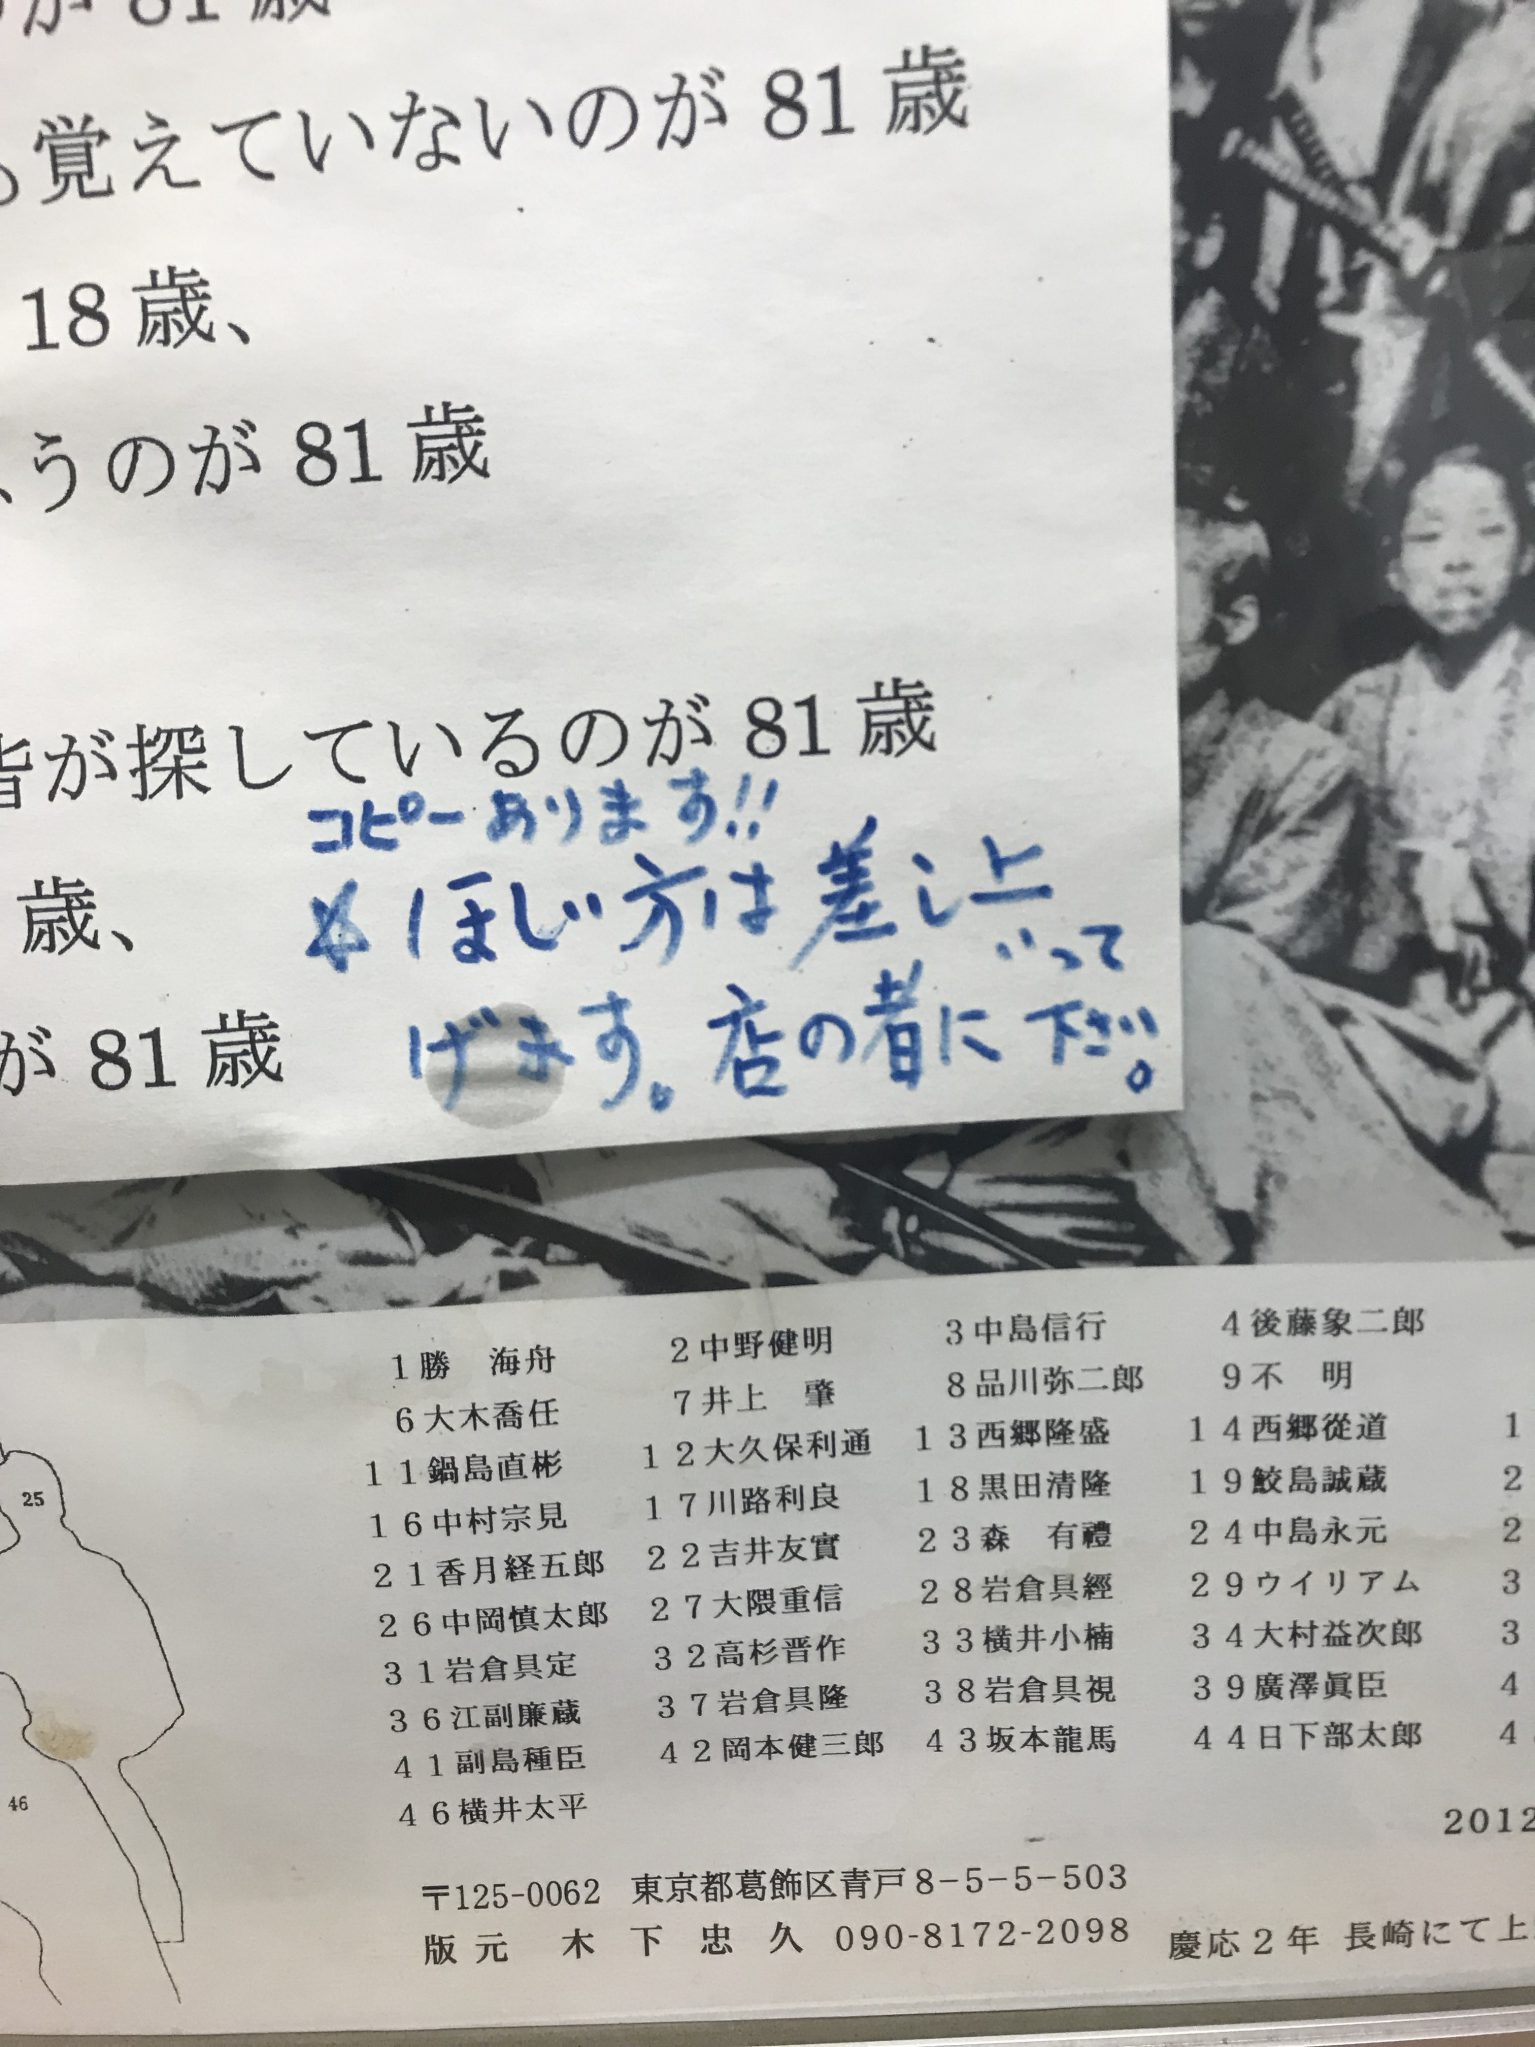 が 81 歳
覚えていないのが 81 歳
18 歳、
うのが 81 歳
皆が探しているのが 81 歳
コピーあります!!
☆ ほしい方は差し上
げます。店の者にいって下さい。
歳、
が 81 歳
1 勝 海舟 2 中野健明 3 中島信行 4 後藤象二郎
6 大木喬任 7 井上 肇 8 品川弥二郎 9 不 明
11 鍋島直彬 12 大久保利通 13 西郷隆盛 14 西郷從道 1
16 中村宗見 17 川路利良 18 黒田清隆 19 鮫島誠蔵 2
21 香月経五郎 22 吉井友實 23 森 有禮 24 中島永元 2
26 中岡慎太郎 27 大隈重信 28 岩倉具經 29 ウイリアム 3
31 岩倉具定 32 高杉晋作 33 横井小楠 34 大村益次郎 3
36 江副廉蔵 37 岩倉具隆 38 岩倉具視 39 廣澤眞臣 4
41 副島種臣 42 岡本健三郎 43 坂本龍馬 44 日下部太郎 4
46 横井太平
25
46
2012
〒125-0062 東京都葛飾区青戸8-5-5-503
版元 木下忠久 090-8172-2098
慶応2年 長崎にて上